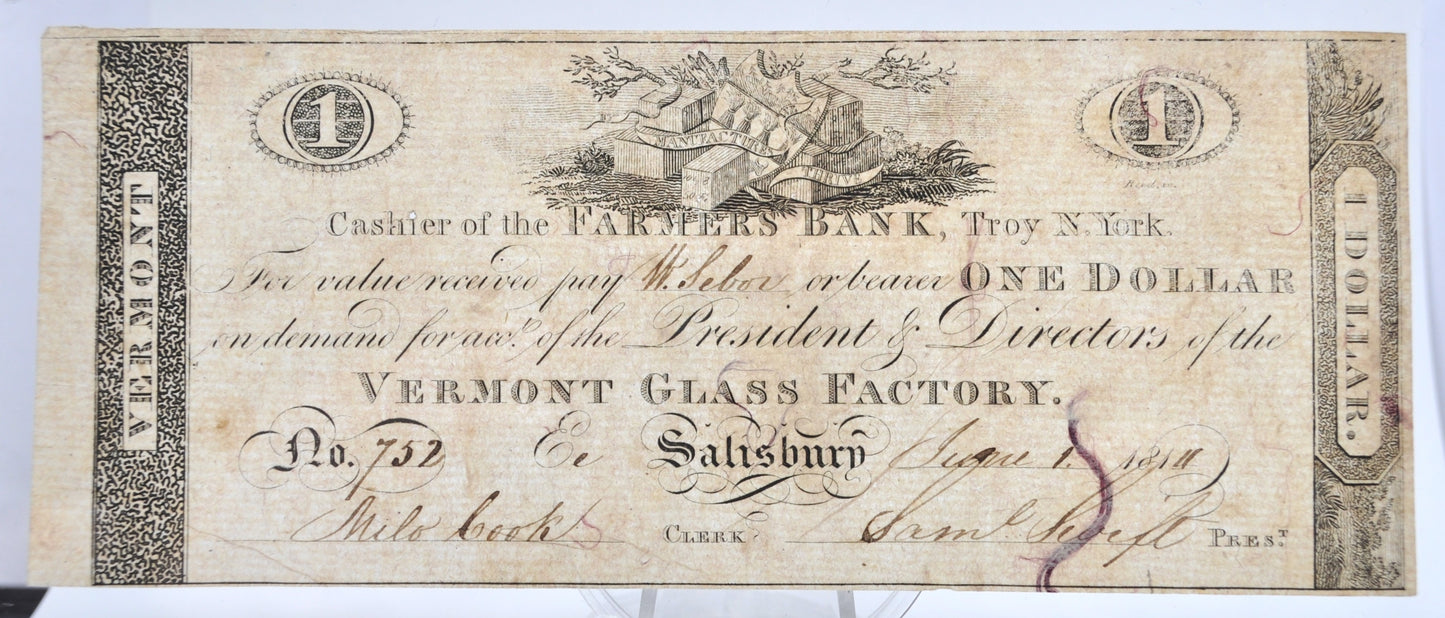 1
1
MANUFACTURES
THRIVE
VERMONT
1 DOLLAR.
Cashier of the FARMERS BANK, Troy N. York.
For value received pay W. Sebor or bearer ONE DOLLAR
on demand for acct. of the President & Directors of the
VERMONT GLASS FACTORY.
No. 752 Ee Salisbury June 1. 1814
Milo Cook CLERK Saml. Swift PREST.